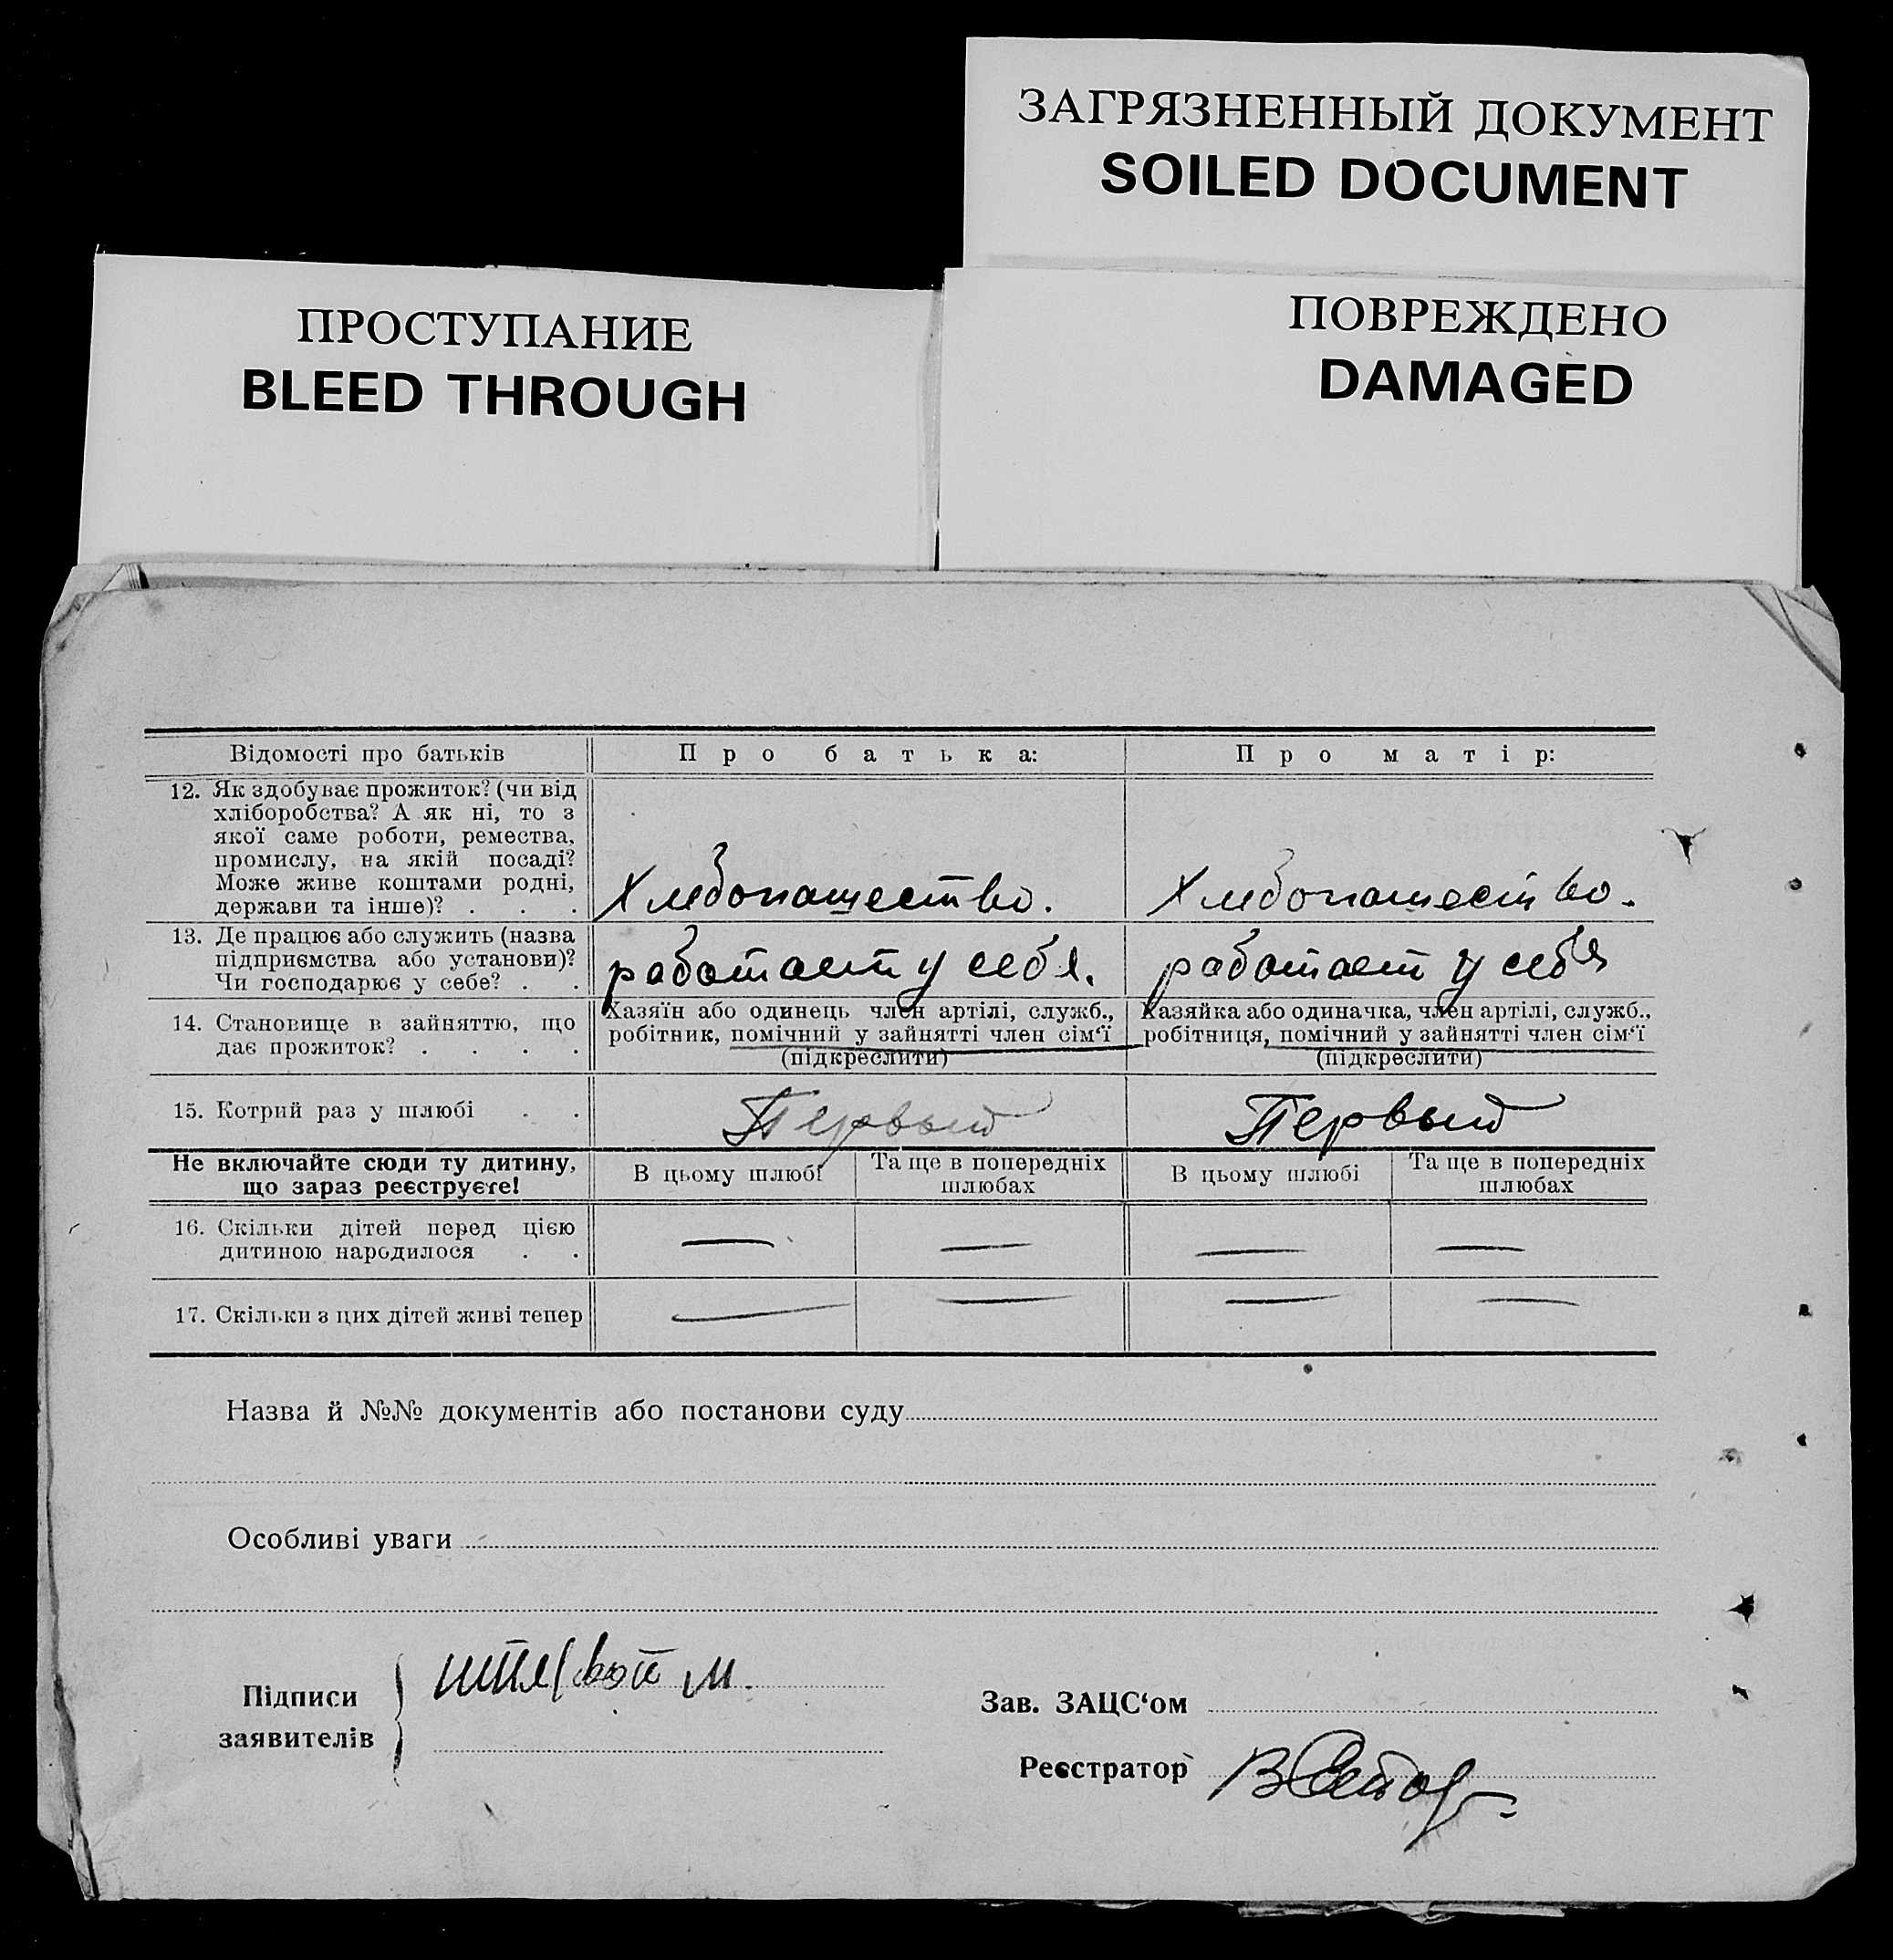 ЗАГРЯЗНЕННЫЙ ДОКУМЕНТ
SOILED DOCUMENT
ПРОСТУПАНИЕ
BLEED THROUGH
ПОВРЕЖДЕНО
DAMAGED
Відомості про батьків
Про батька:
Про матір:
12. Як здобуває прожиток? (чи від
хліборобства? А як ні, то з
якої саме роботи, ремества,
промислу, на якій посаді?
Може живе коштами родні,
держави та інше)? . . .
Хлебопашество.
Хлебопашество.
13. Де працює або служить (назва
підприємства або установи)?
Чи господарює у себе? . .
работает у себя.
работает у себя
14. Становище в зайняттю, що
дає прожиток? . . . .
Хазяїн або одинець член артілі, служб.,
робітник, помічний у зайнятті член сім'ї
(підкреслити)
Хазяйка або одиначка, член артілі, служб.,
робітниця, помічний у зайнятті член сім'ї
(підкреслити)
15. Котрий раз у шлюбі . .
Первый
Первый
Не включайте сюди ту дитину,
що зараз реєструєте!
В цьому шлюбі
Та ще в попередніх
шлюбах
В цьому шлюбі
Та ще в попередніх
шлюбах
16. Скільки дітей перед цією
дитиною народилося . .
— — — —
17. Скільки з цих дітей живі тепер
— — — —
Назва й №№ документів або постанови суду
Особливі уваги
Підписи
заявителів
М.
Зав. ЗАЦС‘ом
Реєстратор